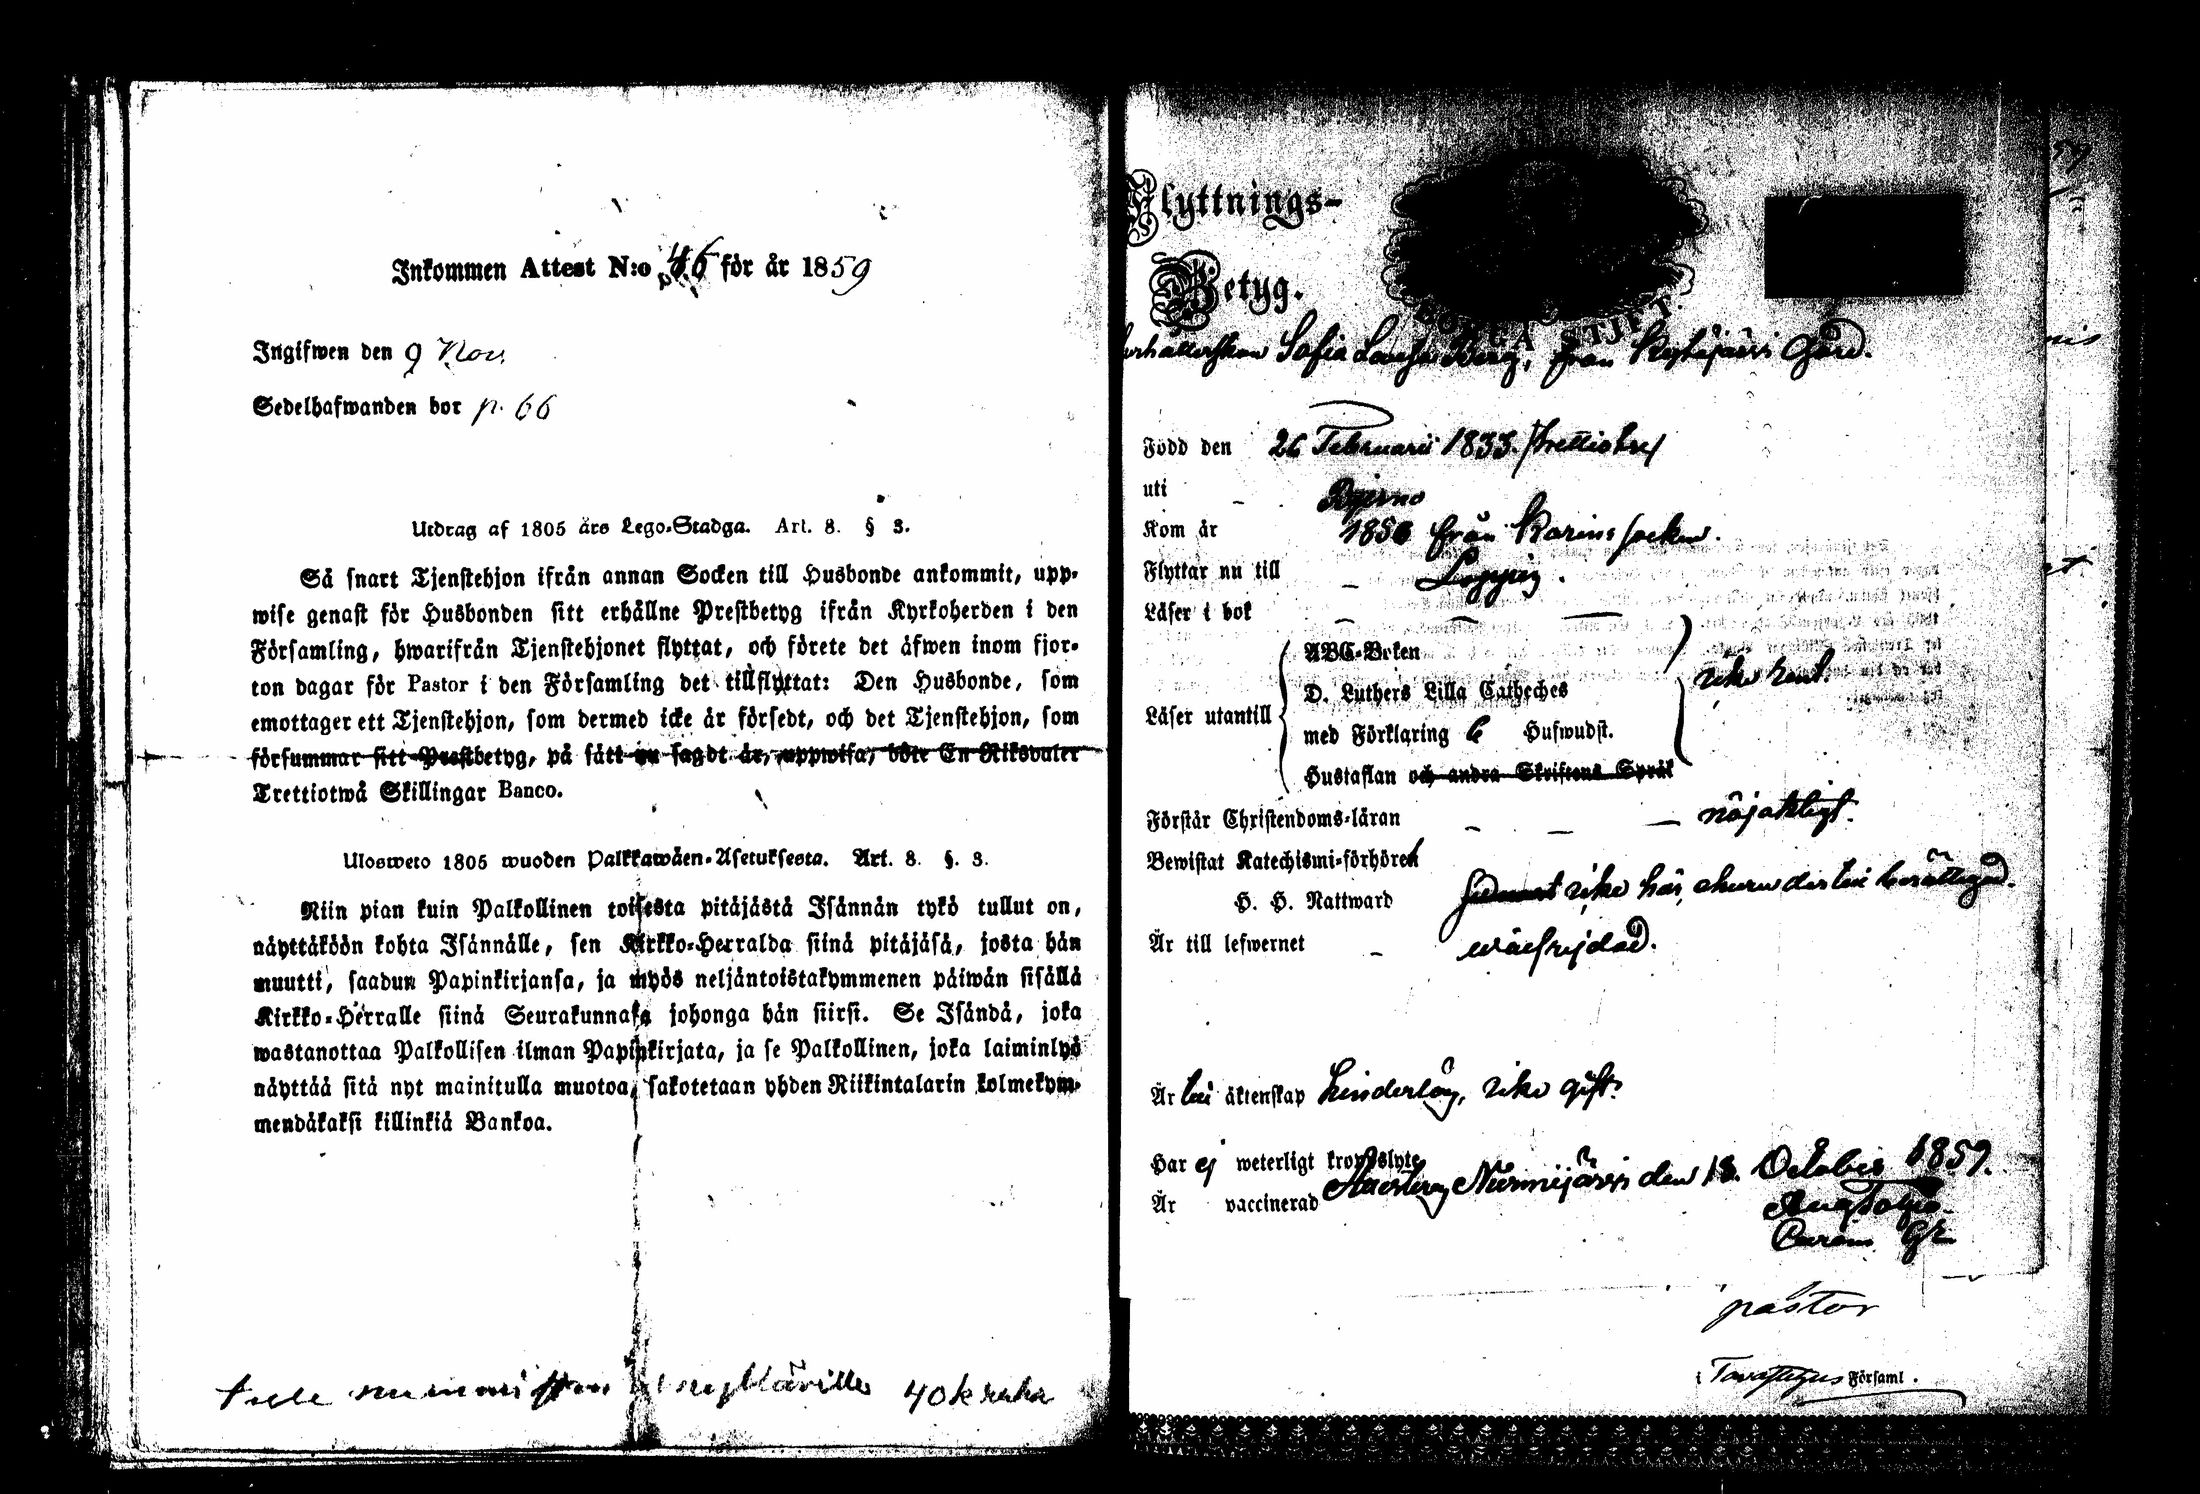 Inkommen Attest N:o 46 för år 1859
Ingifwen den 9 Nov.
Sedelhafwanden bor p. 66
Utdrag af 1805 års Lego-Stadga. Art. 8. § 3.
Så snart Tjenstehjon ifrån annan Socken till Husbonde ankommit, upp-
wise genast för Husbonden sitt erhållne Prestbetyg ifrån Kyrkoherden i den
Församling, hwarifrån Tjenstehjonet flyttat, och förete det äfwen inom fjor-
ton dagar för Pastor i den Församling det tillflyttat: Den Husbonde, som
emottager ett Tjenstehjon, som dermed icke är försedt, och det Tjenstehjon, som
försummar sitt Prestbetyg, på sätt nu sagdt är, uppwisa, böte En Riksdaler
Trettiotwå Skillingar Banco.
Ulosweto 1805 wuoden Palkkawäen-Asetuksesta. Art. 8. §. 3.
Niin pian kuin Palkollinen toisesta pitäjästä Isännän tykö tullut on,
näyttäköön kohta Isännälle, sen Kirkko-Herralda siinä pitäjäsä, josta hän
muutti, saadun Papinkirjansa, ja myös neljäntoistakymmenen päiwän sisällä
Kirkko-Herralle siinä Seurakunnasa johonga hän siirsi. Se Isändä, joka
wastanottaa Palkollisen ilman Papinkirjata, ja se Palkollinen, joka laiminlyö
näyttää sitä nyt mainitulla muotoa, sakotetaan yhden Riikintalarin kolmekym-
mendäkaksi killinkiä Bankoa.
40 k raha
Flyttnings-
Betyg.
BORGÅ STIFT.
Sofia Lovisa Berg, från Kytäjärvi Gård.
Född den 26 Februarii 1833. /trettiotre/
uti Bjerno
Kom år 1856 från Karins socken.
Flyttar nu till Loppis.
Läser i bok
Läser utantill
ABC-Boken
D. Luthers Lilla Catheches
med Förklaring 6 Hufwudst.
Hustaflan och andra Skriftens Språk
icke hört.
Förstår Christendoms-läran nöjaktigt.
Bewistat Katechismi-förhören
H. H. Nattward icke här, ehuru dertill berättigad.
Är till lefwernet wälfrejdad.
Är till äktenskap hinderlös, icke gift.
Har ej weterligt kroppslyte
Är vaccinerad
Nurmijärvi den 18. October 1859.
pastor
i Tavastehus Församl.